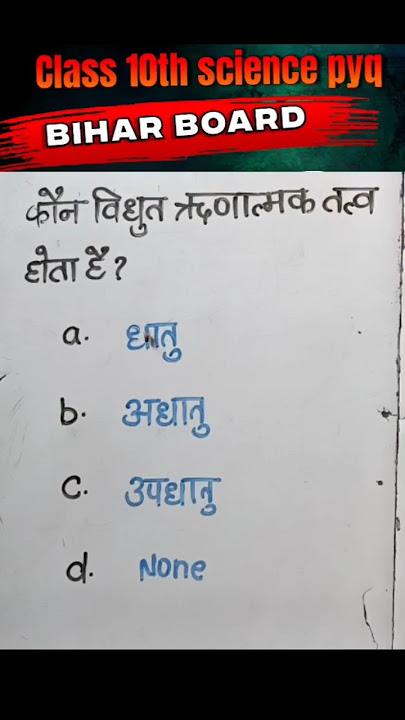 Class 10th science pyq
BIHAR BOARD
कौन विधुत ऋणात्मक तत्व
होता है ?
a. धातु
b. अधातु
c. उपधातु
d. None